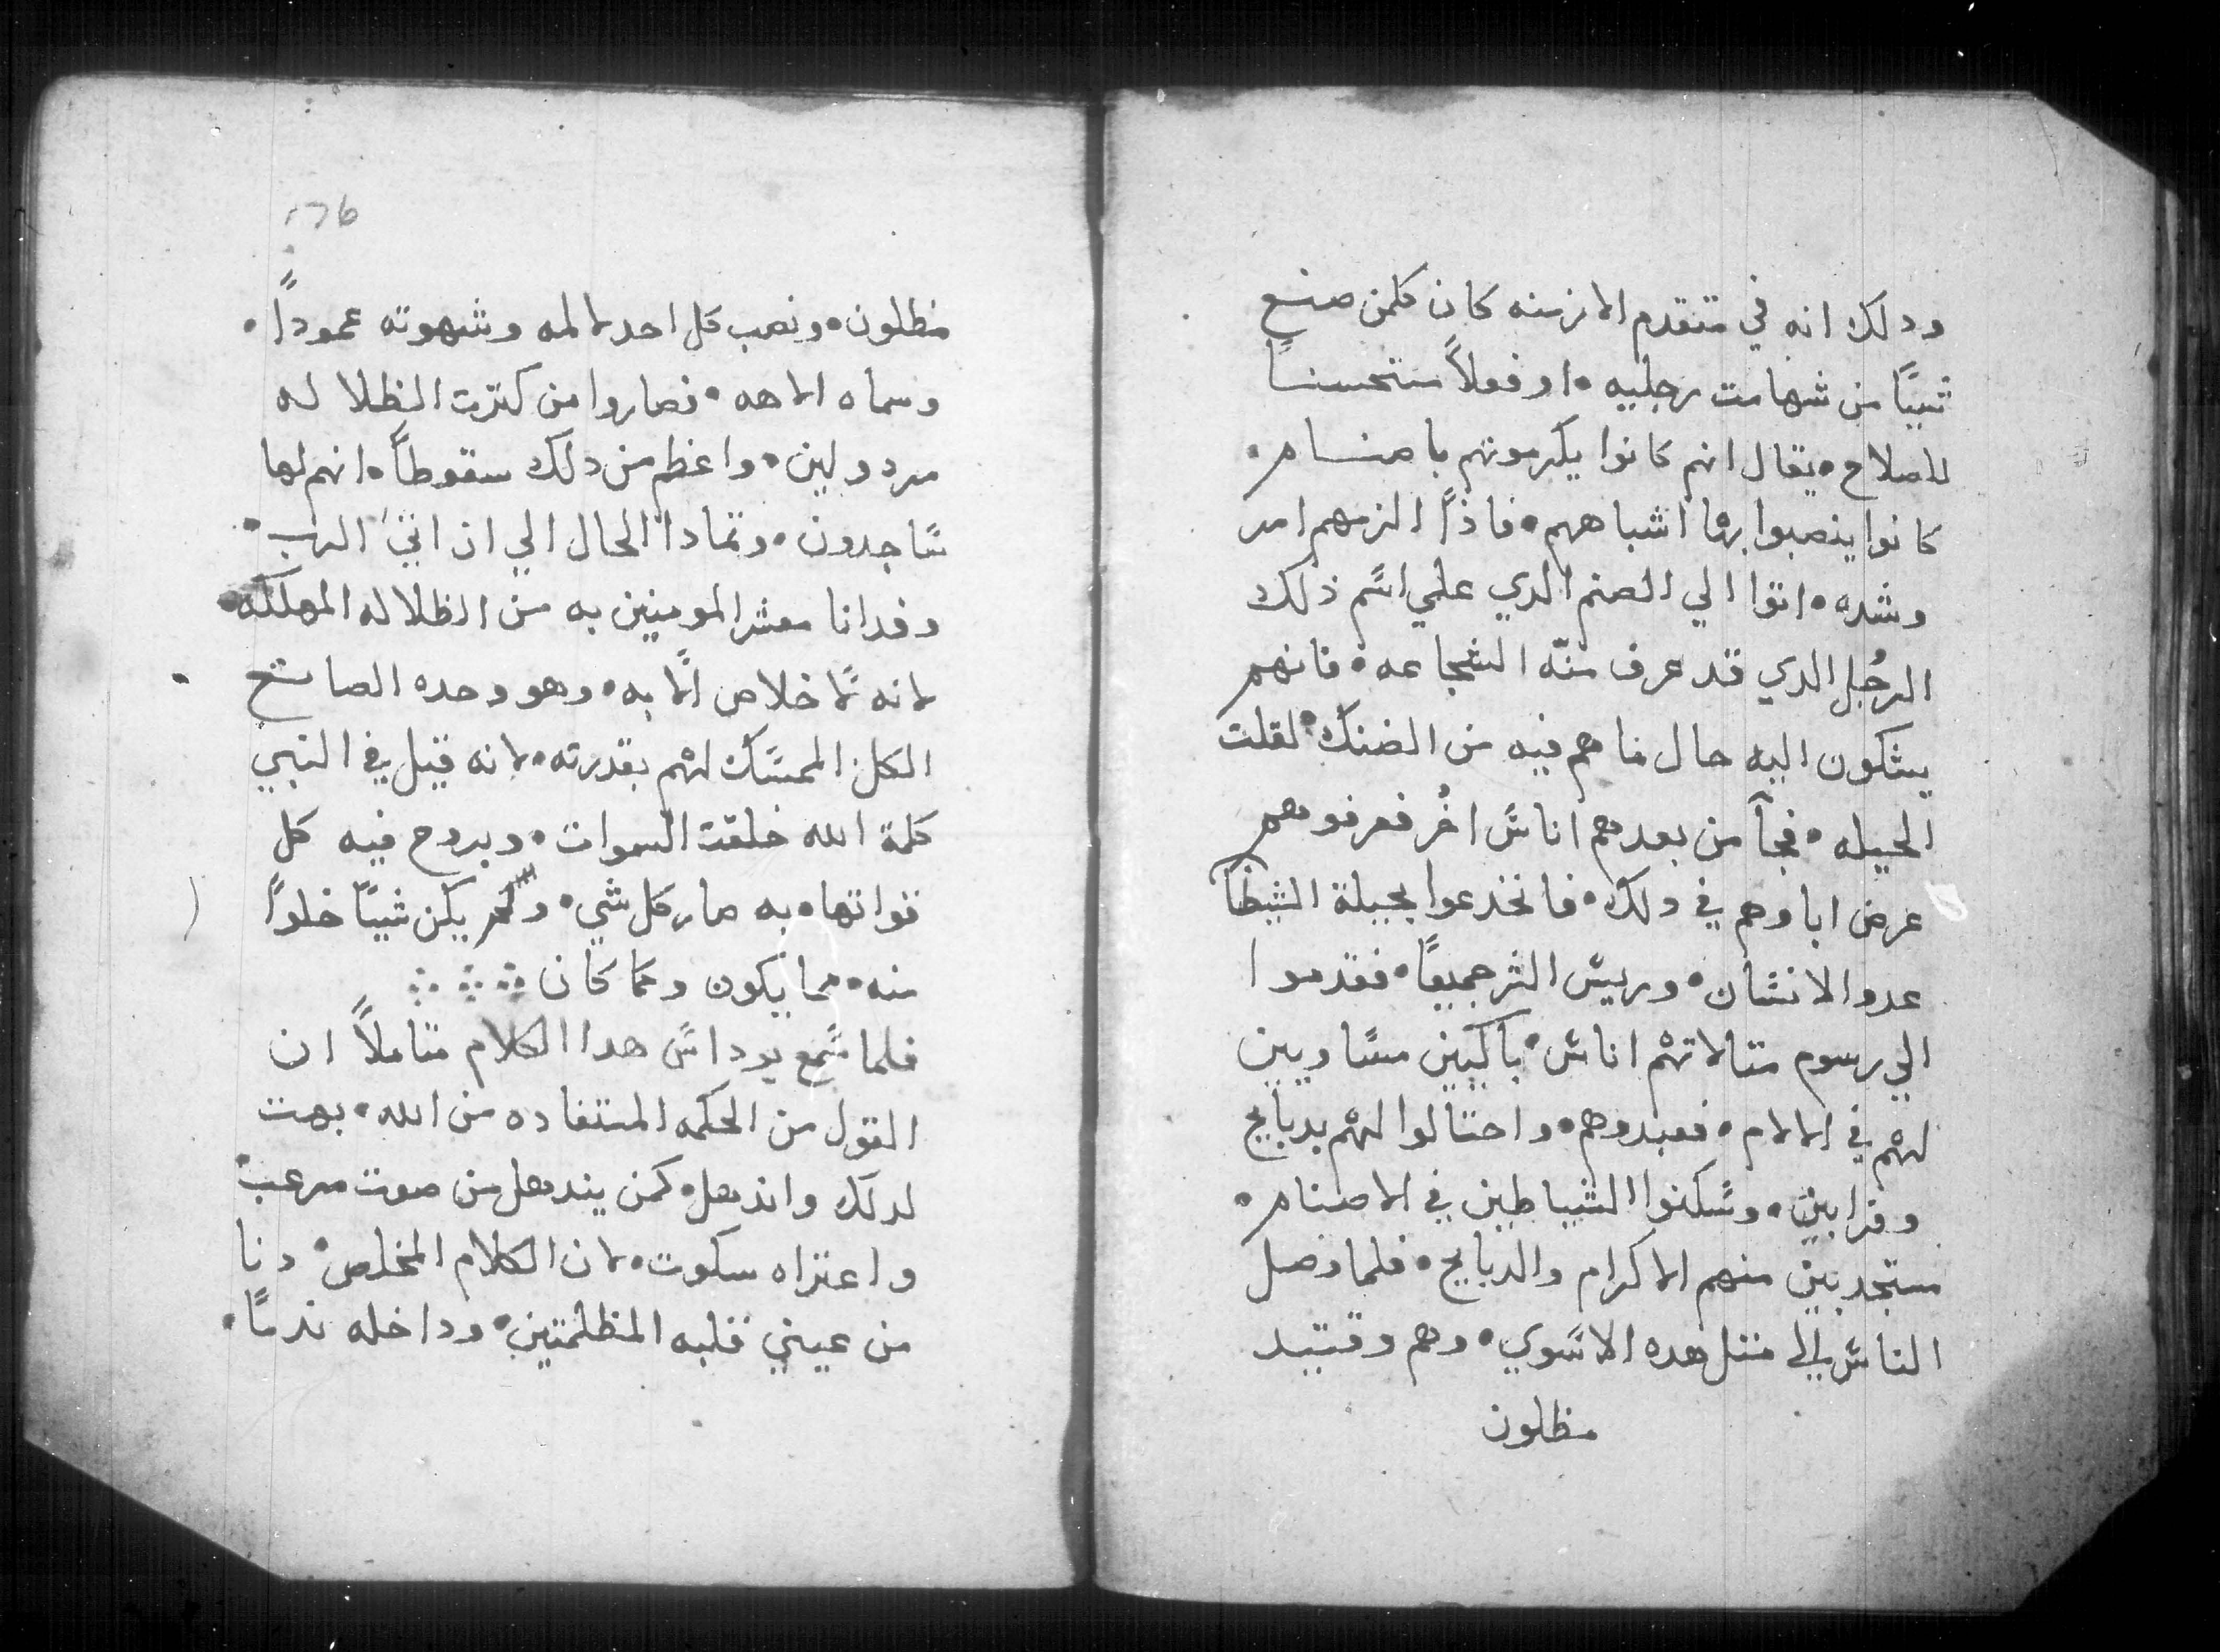 ودلك انه في متقدم الازمنه كان كلمن صنع
شيئًا من شهامت رجليه • او فعلاً مستحسنًا
للصلاح • يقال انهم كانوا يكرمونهم باصنام •
كانوا ينصبوا بها اشباههم • فاذا الزمهم امر
وشده • اتوا الي الصنم الدي علي اسم ذلك
الرجُل الدي قد عرف منه الشجاعه • فانهم
يشكون اليه حال ما هم فيه من الضنك • لقلت
الحيله • فجآ من بعدهم اناس اخُر فعرفوهم
عرض اباوهم في دلك • فانخدعوا بحيلة الشيظا
عدو الانسان • وريس الشر جميعًا • فقدموا
الي رسوم متالاتهم اناس • باكيين مساويين
لهم في الالام • فعبدوهم • واحتالوا لهم بدبايح
وقرابين • وسكنوا الشياطين في الاصنام •
مستجدبين منهم الاكرام والدبايح • فلما وصل
الناس الي متل هده الاسوي • وهم وقتيد
مظلون
176
مظلون • ونصب كل احد لالمه وشهوته عمودًا •
وسماه الاهه • فصاروا من كترت الظلاله
مردولين • واعظم من دلك سقوطًا • انهم لها
ساجدون • وتمادا الحال الي ان اتي الرب •
وفدانا معشر المومنين به من الظلاله المهلكه •
لانه لا خلاص الا به • وهو وحده الصانع
الكل الممسك لهم بقدرته • لانه قيل في النبي
كلمة الله خلقت السموات • وبروح فيه كل
قواتها • به صار كل شي • ولم يكن شيئًا خلوًا
منه • مما يكون ومما كان
فلما سمع يوداس هدا الكلام متاملاً ان
القول من الحكمه المستفاده من الله • بهت
لدلك واندهل • كمن يندهل من صوت مرعب •
واعتراه سكوت • لان الكلام المخلص • دنا
من عيني قلبه المظلمتين • وداخله ندمًا •